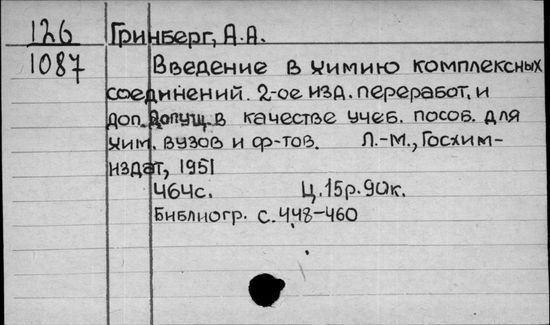 126 Гринберг, А.А.
1087 Введение в химию комплексных
соединений. 2-ое изд. переработ. и
доп. Допущ. в качестве учеб. пособ. для
хим. вузов и ф-тов. Л.-М., Госхим-
издат, 1951
464с. Ц. 15р. 90к.
Библиогр. с. 448-460